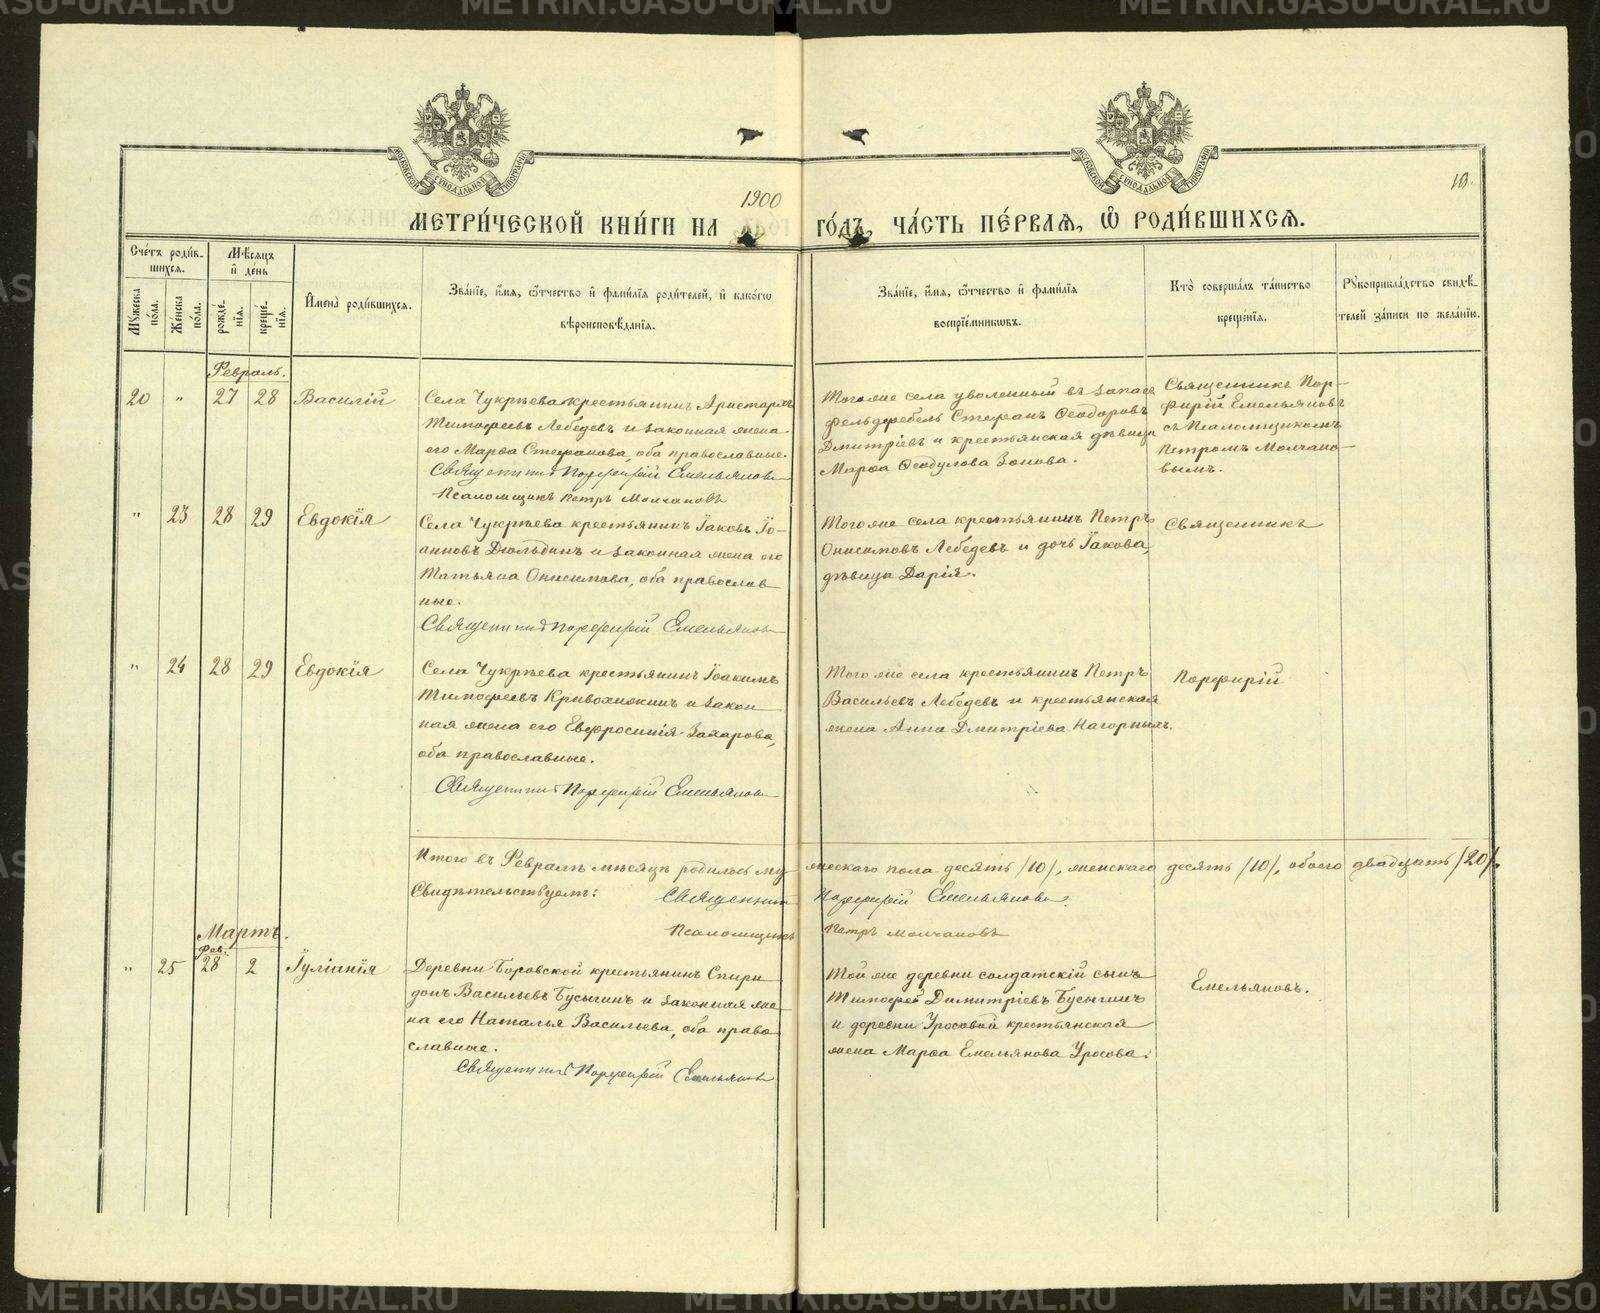 METRIKI.GASO-URAL.RU
1900
10.
МЕТРИ́ЧЕСКОЙ КНИ́ГИ НА ГО́ДЪ, ЧА́СТЬ ПЕ́РВАѦ, Ѽ РОДИ́ВШИХСѦ.
МОСКОВСКОЙ СѴНОДАЛЬНОЙ ТИПОГРАФІИ
Сче́тъ роди́в-
шихся.
Мꙋжеска по́ла.
Же́нска по́ла.
Мѣ́сяцъ
и҆ де́нь
рожде́-
нїя.
креще́-
нїя.
И҆мена̀ роди́вшихся.
Зва́нїе, и҆́мя, ѻ҆́тчество и҆ фами́лїя роди́телей, и҆ како́гѡ
вѣроисповѣ́данїя.
Зва́нїе, и҆́мя, ѻ҆́тчество и҆ фами́лїя
воспрїе́мникѡвъ.
Кто̀ соверша́лъ та́инство
креще́нїя.
Рꙋкоприкла́дство свидѣ́-
телей за́писи по жела́нїю.
Февраль.
20 " 27 28 Василій
Села Чукрѣева крестьянинъ Аристархъ
Тимофеевъ Лебедевъ и законная жена
его Марѳа Стефанова, оба православные.
Священникъ Порфирій Емельяновъ
Псаломщикъ Петръ Молчановъ
Того же села уволенный въ запасъ
фельдфебель Стефанъ Ѳеодоровъ
Дмитріевъ и крестьянская дѣвица
Марѳа Ѳеодулова Зонова.
Священникъ Пор-
фирій Емельяновъ
съ Псаломщикомъ
Петромъ Молчано-
вымъ.
" 23 28 29 Евдокія
Села Чукрѣева крестьянинъ Іаковъ Іо-
анновъ Дюльдинъ и законная жена его
Татьяна Онисимова, оба православ
ные.
Священникъ Порфирій Емельяновъ
Того же села крестьянинъ Петръ
Онисимовъ Лебедевъ и дочь Іакова,
дѣвица Дарія.
Священникъ
" 24 28 29 Евдокія
Села Чукрѣева крестьянинъ Іоакимъ
Тимофеевъ Кривоногинъ и закон
ная жена его Евфросинія Захарова,
оба православные.
Священникъ Порфирій Емельяновъ
Того же села крестьянинъ Петръ
Васильевъ Лебедевъ и крестьянская
жена Анна Дмитріева Нагорныхъ.
Порфирій
Итого въ Февралѣ мѣсяцѣ родилось му жескаго пола десять /10/, женскаго десять /10/, обоего двадцать /20/.
Свидѣтельствуемъ: Священникъ Порфирій Емельяновъ.
Псаломщикъ Петръ Молчановъ
Мартъ.
Фев.
" 25 28 2 Іуліанія
Деревни Боровской крестьянинъ Спири
донъ Васильевъ Бусыгинъ и законная же-
на его Наталья Васильева, оба право
славные.
Священникъ Порфирій Емельяновъ
Той же деревни солдатскій сынъ
Тимофей Димитріевъ Бусыгинъ
и деревни Уросовой крестьянская
жена Марѳа Емельянова Уросова.
Емельяновъ.